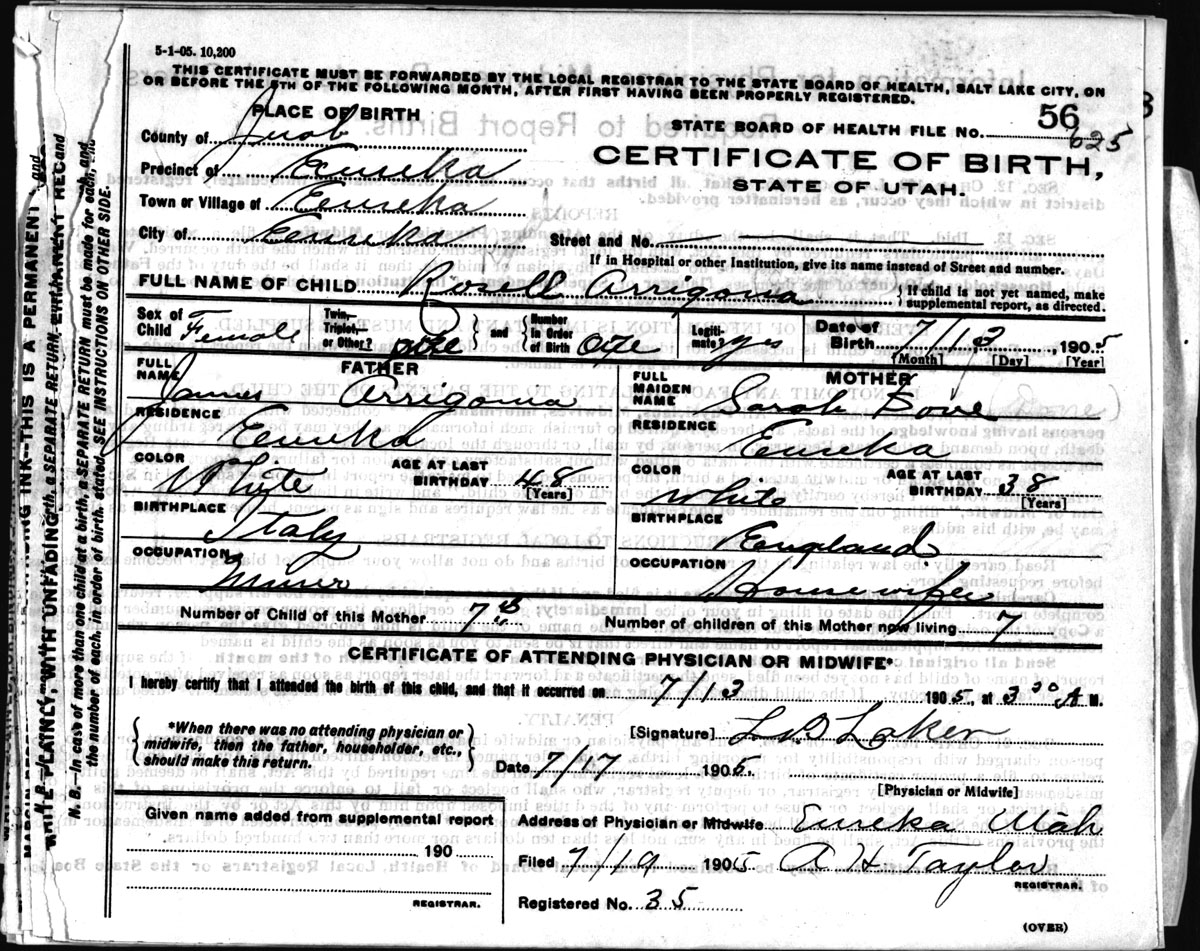 5-1-05. 10,200
THIS CERTIFICATE MUST BE FORWARDED BY THE LOCAL REGISTRAR TO THE STATE BOARD OF HEALTH, SALT LAKE CITY, ON
OR BEFORE THE 5TH OF THE FOLLOWING MONTH, AFTER FIRST HAVING BEEN PROPERLY REGISTERED.
PLACE OF BIRTH
STATE BOARD OF HEALTH FILE NO. 56
625
County of Juab
CERTIFICATE OF BIRTH,
Precinct of Eureka
STATE OF UTAH.
Town or Village of Eureka
City of Eureka
Street and No.
If in Hospital or other Institution, give its name instead of Street and number.
FULL NAME OF CHILD Rosell Arrigona { If child is not yet named, make supplemental report, as directed.
Sex of Child Female Twin, Triplet, or Other? one } and { Number in Order of Birth one Legitimate? yes Date of Birth 7/13, 1905
[Month] [Day] [Year]
FATHER
MOTHER
FULL NAME James Arrigona
FULL MAIDEN NAME Sarah Bone
(Bone)
RESIDENCE Eureka
RESIDENCE Eureka
COLOR White AGE AT LAST BIRTHDAY 48 [Years]
COLOR White AGE AT LAST BIRTHDAY 38 [Years]
BIRTHPLACE Italy
BIRTHPLACE England
OCCUPATION Miner
OCCUPATION Housewife
Number of Child of this Mother 7th
Number of children of this Mother now living 7
CERTIFICATE OF ATTENDING PHYSICIAN OR MIDWIFE*
I hereby certify that I attended the birth of this child, and that it occurred on 7/13 1905, at 3 00 A M.
{ *When there was no attending physician or midwife, then the father, householder, etc., should make this return. }
[Signature] L D Laker
Date 7/17 1905
[Physician or Midwife]
Given name added from supplemental report
190
REGISTRAR.
Address of Physician or Midwife Eureka Utah
Filed 7/19 1905 A H Taylor
REGISTRAR.
Registered No. 35
(OVER)
WRITE PLAINLY, WITH UNFADING
N. B.—In case of more than one child at a birth, a SEPARATE RETURN must be made for each, and
the number of each, in order of birth, stated. SEE INSTRUCTIONS ON OTHER SIDE.